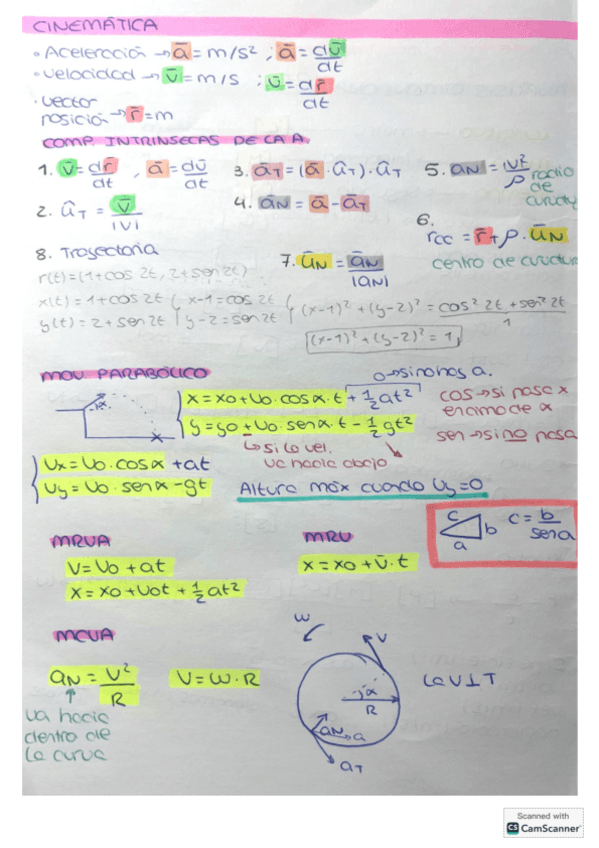 CINEMÁTICA
• Aceleración → ā = m/s² ; ā = dv̄/dt
• Velocidad → v̄ = m/s ; v̄ = dr̄/dt
• Vector posición → r̄ = m
COMP. INTRINSECAS DE LA A.
1. v̄ = dr̄/dt , ā = dv̄/dt
2. ûT = v̄/|v|
3. āT = (ā · ûT) · ûT
4. āN = ā - āT
5. aN = |v|²/ρ radio de curvatu
6. rcc = r̄ + ρ · ūN
centro de curvatura
7. ūN = āN/|aN|
8. Trayectoria
r(t) = (1+cos 2t, 2+sen 2t)
x(t) = 1+cos 2t { x-1 = cos 2t
y(t) = 2+sen 2t { y-2 = sen 2t
(x-1)² + (y-2)² = cos² 2t + sen² 2t
1
(x-1)² + (y-2)² = 1
MOV PARABÓLICO
0 → si no hay a.
α
x = x0 + v0 · cos α · t + ½ at²
y = y0 + v0 · sen α · t - ½ gt²
↳ si la vel. va hacia abajo
cos → si pasa x encima de α
sen → si no pasa
vx = v0 · cos α + at
vy = v0 · sen α - gt
Altura máx cuando vy = 0
c
b
a
c = b/sen a
MRUA
v = v0 + at
x = x0 + v0t + ½ at²
MRU
x = x0 + v̄ · t
MCUA
aN = v²/R
v = ω · R
va hacia
dentro de
la curva
ω
v
α
R
aN
a
aT
La v ⊥ T
Scanned with
CS CamScanner